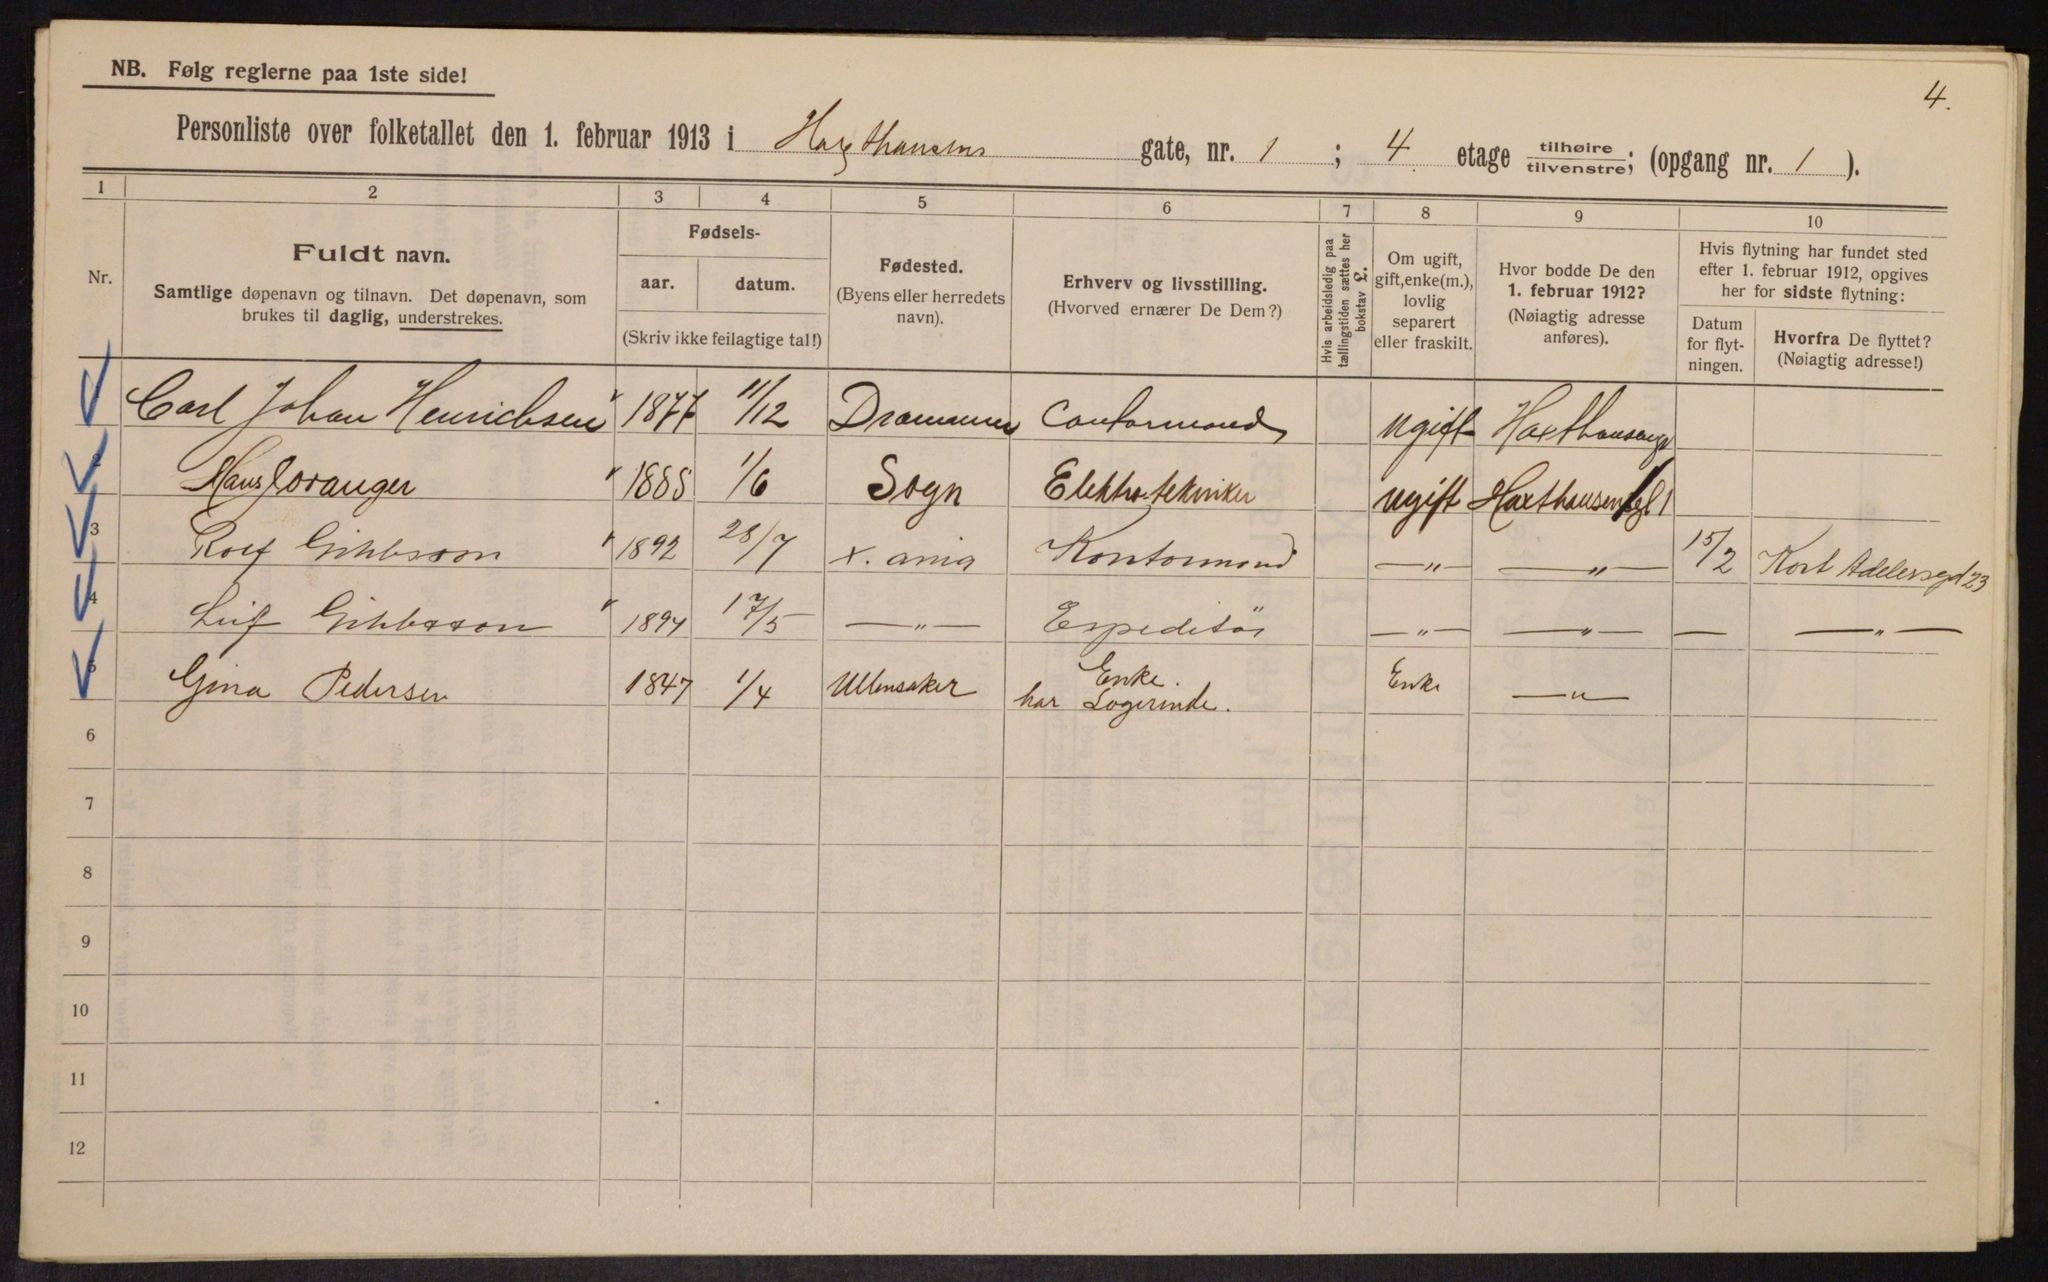 NB. Følg reglerne paa 1ste side!
4.
Personliste over folketallet den 1. februar 1913 i Haxthausens gate, nr. 1 ; 4. etage tilhøire tilvenstre; (opgang nr. 1 ).
1 2 3 4 5 6 7 8 9 10
Nr.
Fuldt navn.
Samtlige døpenavn og tilnavn. Det døpenavn, som
brukes til daglig, understrekes.
Fødsels-
aar. datum.
(Skriv ikke feilagtige tal!)
Fødested.
(Byens eller herredets
navn).
Erhverv og livsstilling.
(Hvorved ernærer De Dem?)
Hvis arbeidsledig paa
tællingstiden sættes her
bokstav L.
Om ugift,
gift, enke(m.),
lovlig
separert
eller fraskilt.
Hvor bodde De den
1. februar 1912?
(Nøiagtig adresse
anføres).
Hvis flytning har fundet sted
efter 1. februar 1912, opgives
her for sidste flytning:
Datum
for flyt-
ningen.
Hvorfra De flyttet?
(Nøiagtig adresse!)
Carl Johan Henrichsen 1877 11/12 Drammen Contormand ugift Haxthausensgt
2 Hans Loranger 1888 1/6 Sogn Elektrotekniker ugift Haxthausensgt 1
3 Rolf Gihbsson 1892 28/7 x. ania Kontormand —„— —„— 15/2 Kort Adelersgd 23
4 Leif Gihbsson 1894 17/5 —„— Expeditør —„— —„— — —„—
5 Gina Pedersen 1847 1/4 Ullensaker Enke. har Logerinde. Enke —„—
6
7
8
9
10
11
12